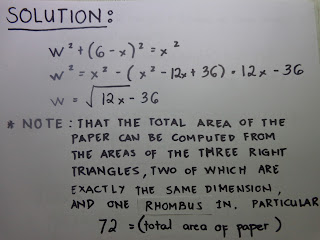 SOLUTION:
w² + (6 - x)² = x²
w² = x² - (x² - 12x + 36) = 12x - 36
w = √12x - 36
* NOTE: THAT THE TOTAL AREA OF THE
PAPER CAN BE COMPUTED FROM
THE AREAS OF THE THREE RIGHT
TRIANGLES, TWO OF WHICH ARE
EXACTLY THE SAME DIMENSION,
AND ONE RHOMBUS IN. PARTICULAR
72 = (total area of paper)